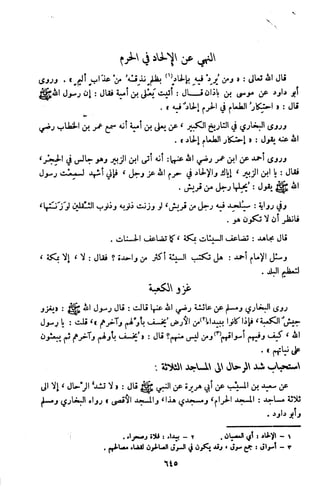 النهي عن الإلحاد في الحرم
قال الله تعالى : « ومن يُرد فيه بإلحاد (١) بظلم نذقه من عذاب أليم » . وروى
أبو داود عن موسى بن باذان قال : أتيت يعلى بن أمية فقال : إن رسول الله ﷺ
قال : « احتكار الطعام في الحرم إلحاد فيه » .
وروى البخاري في التاريخ الكبير ، عن يعلى بن أمية أنه سمع عمر بن الخطاب رضي
الله عنه يقول : « احتكار الطعام إلحاد » .
وروى أحمد عن ابن عمر رضي الله عنهما : أنه أتى ابن الزبير وهو جالس في الحِجر ،
فقال : يا ابن الزبير ، إياك والإلحاد في حرم الله عز وجل ، فإني أشهد لسمعت رسول
الله ﷺ يقول : يُحلها رجل من قريش .
وفي رواية : سيُلحد فيه رجل من قريش ، لو وزنت ذنوبه وذنوب الثقلين لوزنتها ،
فانظر أن لا تكون هو .
قال مجاهد : تضاعف السيئات بمكة ، كما تضاعف الحسنات .
وسئل الإمام أحمد : هل تكتب السيئة أكثر من واحدة ؟ فقال : لا ، إلا بمكة ،
لتعظيم البلد .
غزو الكعبة
روى البخاري ومسلم عن عائشة رضي الله عنها قالت : قال رسول الله ﷺ : « يغزو
جيش الكعبة ، فإذا كانوا ببيداء (٢) من الأرض يُخسف بأولهم وآخرهم » ، قلت : يا رسول
الله ، كيف وفيهم أسواقهم (٣) ومن ليس منهم ؟ قال : « يُخسف بأولهم وآخرهم ثم يبعثون
على نياتهم » .
استحباب شد الرحال الى المساجد الثلاثة :
عن سعيد بن المسيَّب عن أبي هريرة عن النبي ﷺ قال : « لا تشدُّ الرحال ، إلا الى
ثلاثة مساجد : المسجد الحرام ، ومسجدي هذا ، والمسجد الأقصى » رواه البخاري ومسلم
وأبو داود .
١ – الإلحاد : أي العصيان . ٢ – بيداء : فلاة وصحراء .
٣ – أسواق : جمع سوق ، وقد يكون في السوق الصالحون لقضاء مصالحهم .
٦٤٥